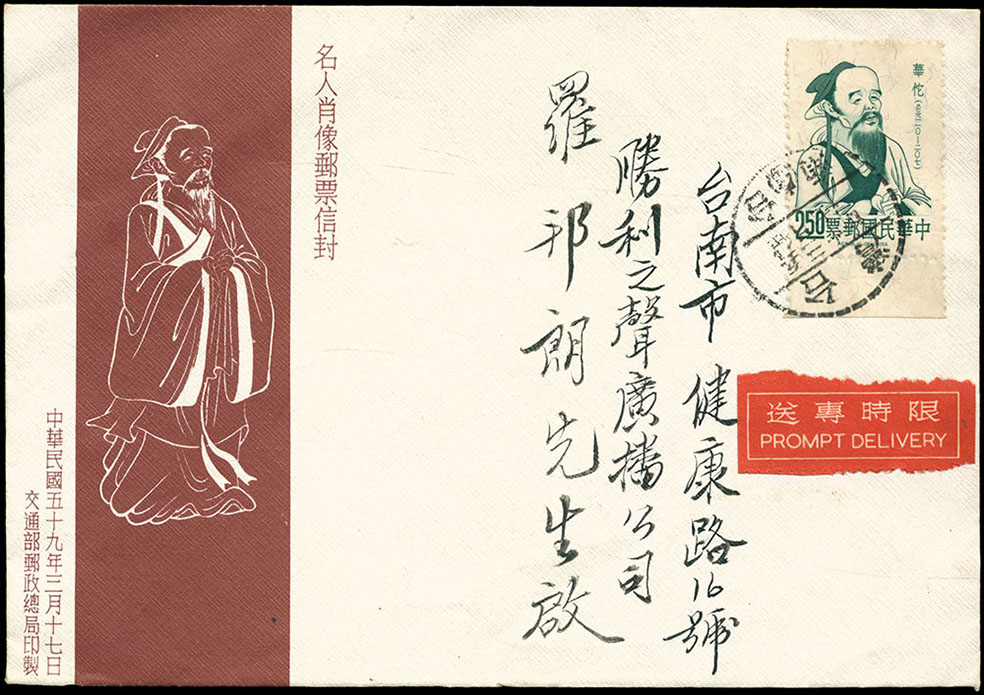 華佗(公元一一〇—二〇七)
中華民國郵票
2.50
限時專送
PROMPT DELIVERY
台南市健康路16號
勝利之聲廣播公司
羅邦朗先生啟
名人肖像郵票信封
中華民國五十九年三月十七日
交通部郵政總局印製